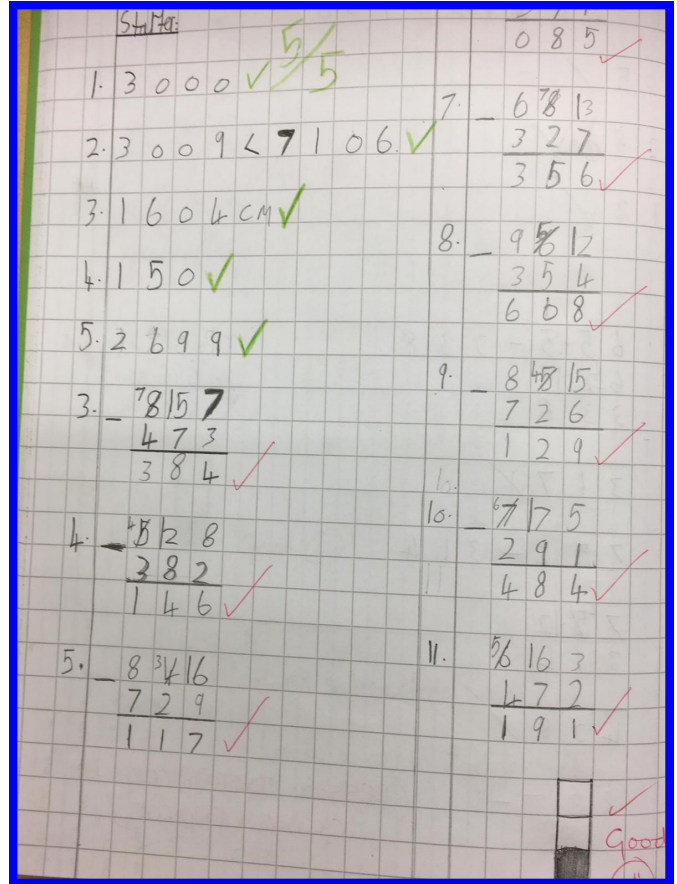 Starter:
5/5
1. 3000
2. 3009 < 7106.
3. 1604 cm
4. 150
5. 2699
3. - 78157
473
384
4. - 45128
382
146
5. - 83416
729
117
085
7. - 67813
327
356
8. - 95612
354
608
9. - 84515
726
129
10. - 67175
291
484
11. 56163
472
191
Good